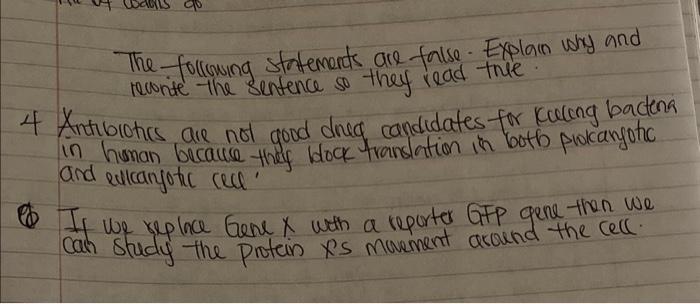 of codons do
The following statements are false. Explain why and
rewrite the sentence so they read true.
4 Antibiotics are not good drug candidates for killing bacteria
in human because they block translation in both prokaryotic
and eukaryotic cell.
If we replace Gene X with a reporter GFP gene then we
can study the protein X's movement around the cell.